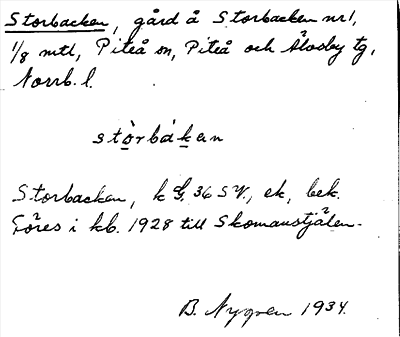 Storbacken, gård å Storbacken nr 1,
1/8 mtl, Piteå sn, Piteå och Älvsby tg,
Norrb. l.
stòrbákan
Storbacken, k G. 36 SV., ek, bek.
Föres i kb. 1928 till Skomanstjälen.
B. Nygren 1934.